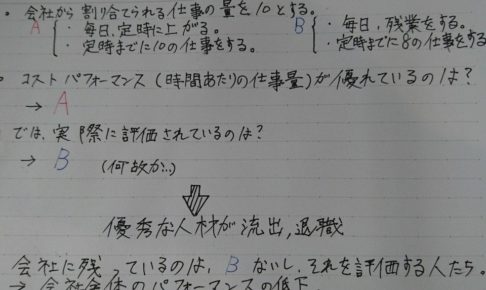 ・会社から割り合てられる仕事の量を10とする。
A ・毎日,定時に上がる。 B ・毎日,残業をする。
・定時までに10の仕事をする。 ・定時までに8の仕事をする
・コストパフォーマンス(時間あたりの仕事量)が優れているのは?
→ A
では,実際に評価されているのは?
→ B (何故か…)
優秀な人材が流出,退職
会社に残っているのは,Bないし,それを評価する人たち。
→ 会社全体のパフォーマンスの低下